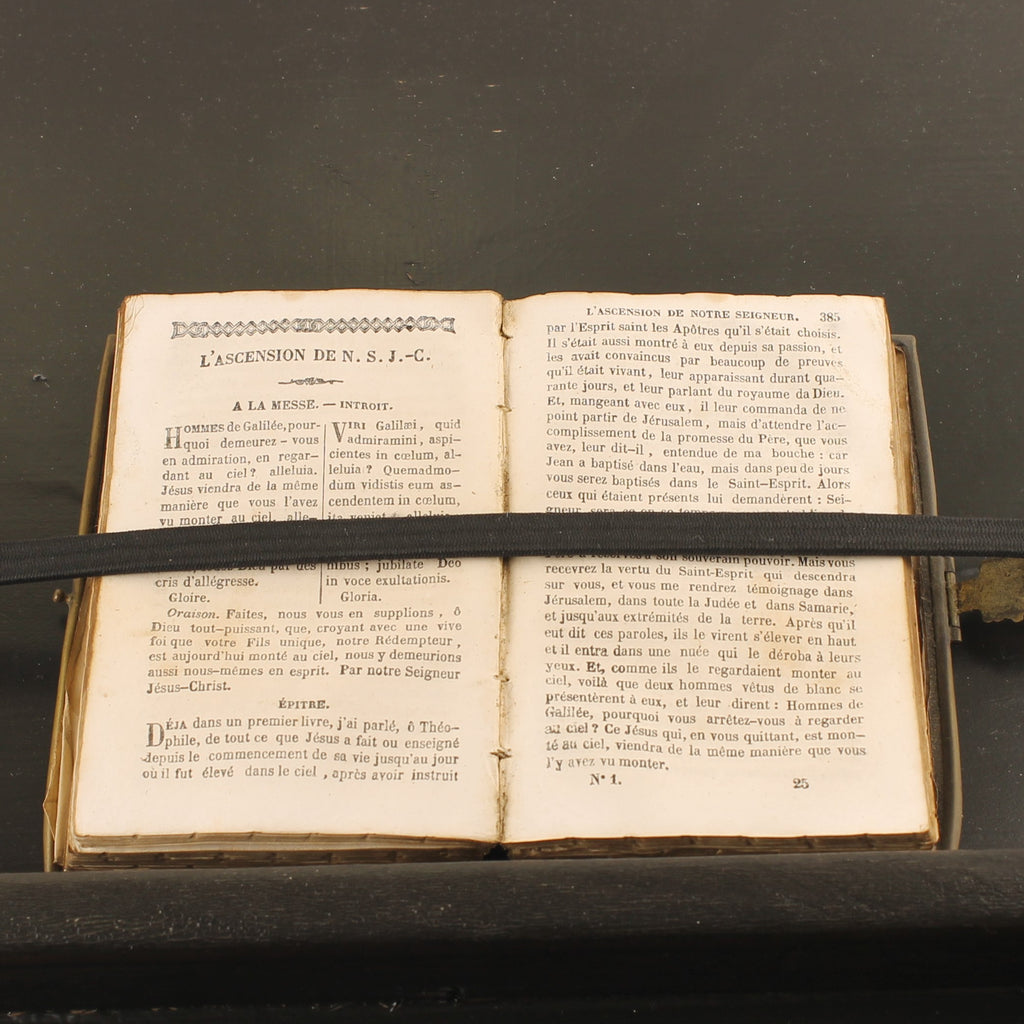 L'ASCENSION DE N. S. J.-C.
A LA MESSE. — INTROIT.
HOMMES de Galilée, pour-
quoi demeurez-vous
en admiration, en regar-
dant au ciel? alleluia.
Jésus viendra de la même
manière que vous l'avez
vu monter au ciel, alle-
cris d'allégresse.
Gloire.
VIRI Galilæi, quid
admiramini, aspi-
cientes in cœlum, al-
leluia? Quemadmo-
dùm vidistis eum as-
cendentem in cœlum,
nibus; jubilate Deo
in voce exultationis.
Gloria.
Oraison. Faites, nous vous en supplions, ô
Dieu tout-puissant, que, croyant avec une vive
foi que votre Fils unique, notre Rédempteur,
est aujourd'hui monté au ciel, nous y demeurions
aussi nous-mêmes en esprit. Par notre Seigneur
Jésus-Christ.
ÉPITRE.
DÉJA dans un premier livre, j'ai parlé, ô Théo-
phile, de tout ce que Jésus a fait ou enseigné
depuis le commencement de sa vie jusqu'au jour
où il fut élevé dans le ciel, après avoir instruit
L'ASCENSION DE NOTRE SEIGNEUR. 385
par l'Esprit saint les Apôtres qu'il s'était choisis.
Il s'était aussi montré à eux depuis sa passion, et
les avait convaincus par beaucoup de preuves
qu'il était vivant, leur apparaissant durant qua-
rante jours, et leur parlant du royaume da Dieu.
Et, mangeant avec eux, il leur commanda de ne
point partir de Jérusalem, mais d'attendre l'ac-
complissement de la promesse du Père, que vous
avez, leur dit-il, entendue de ma bouche : car
Jean a baptisé dans l'eau, mais dans peu de jours
vous serez baptisés dans le Saint-Esprit. Alors
ceux qui étaient présents lui demandèrent : Sei-
souverain pouvoir. Mais vous
recevrez la vertu du Saint-Esprit qui descendra
sur vous, et vous me rendrez témoignage dans
Jérusalem, dans toute la Judée et dans Samarie,
et jusqu'aux extrémités de la terre. Après qu'il
eut dit ces paroles, ils le virent s'élever en haut
et il entra dans une nuée qui le déroba à leurs
yeux. Et, comme ils le regardaient monter au
ciel, voilà que deux hommes vêtus de blanc se
présentèrent à eux, et leur dirent : Hommes de
Galilée, pourquoi vous arrêtez-vous à regarder
au ciel? Ce Jésus qui, en vous quittant, est mon-
té au ciel, viendra de la même manière que vous
l'y avez vu monter.
N° 1. 25